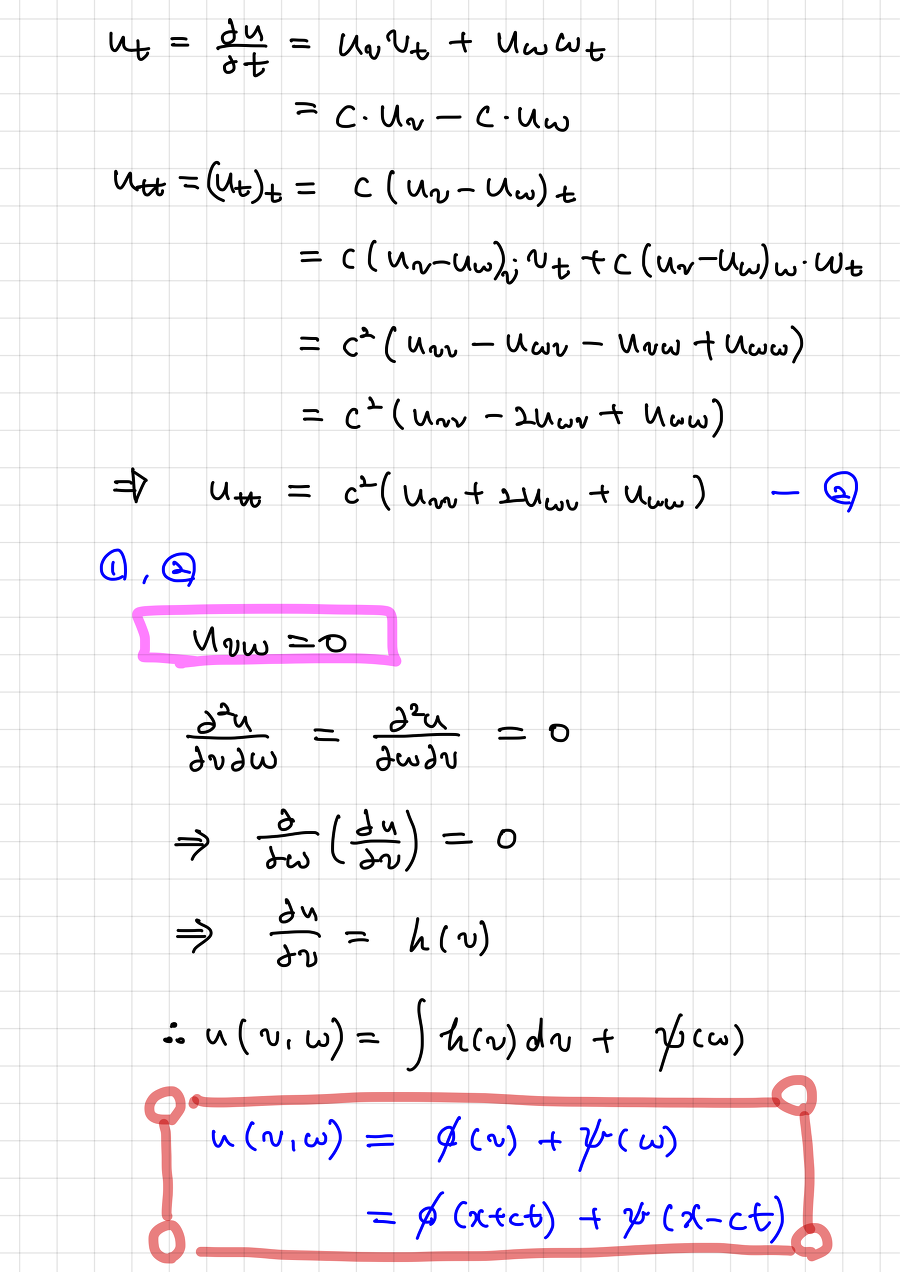 u_t = ∂u/∂t = u_v v_t + u_w w_t
= c · u_v − c · u_w
u_tt = (u_t)_t = c (u_v − u_w)_t
= c (u_v − u_w)_v · v_t + c (u_v − u_w)_w · w_t
= c² (u_vv − u_wv − u_vw + u_ww)
= c² (u_vv − 2u_wv + u_ww)
⇒ u_tt = c² (u_vv + 2u_wv + u_ww) − ②
①, ②
u_vw = 0
∂²u/∂v∂w = ∂²u/∂w∂v = 0
⇒ ∂/∂w (∂u/∂v) = 0
⇒ ∂u/∂v = h(v)
∴ u(v, w) = ∫ h(v) dv + ψ(w)
u(v, w) = ϕ(v) + ψ(w)
= ϕ(x+ct) + ψ(x−ct)